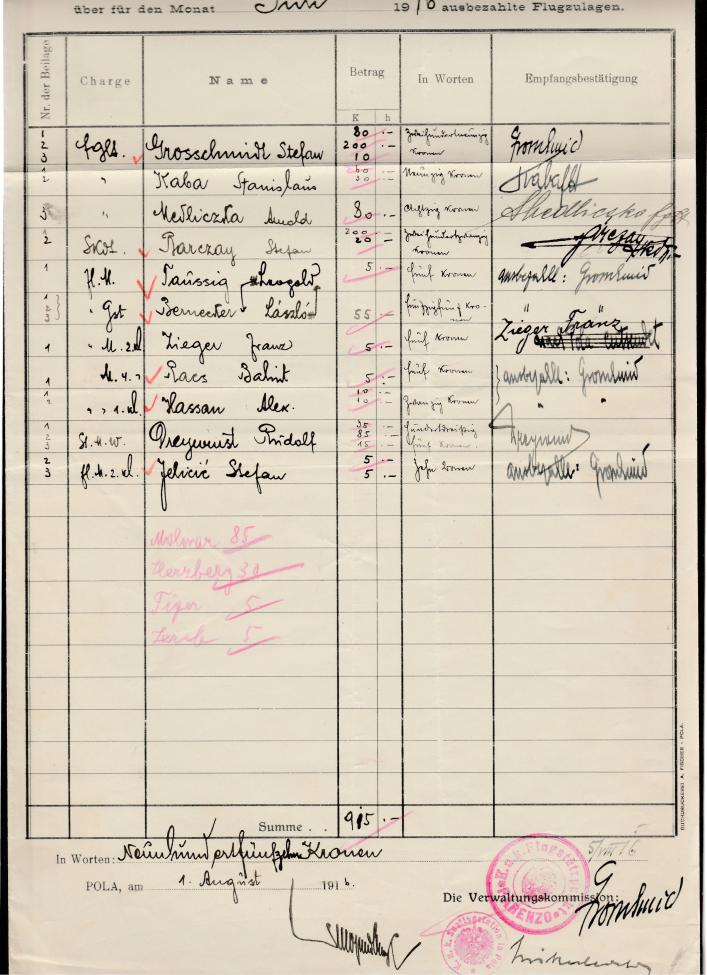 über für den Monat Juli 1916 ausbezahlte Flugzulagen.
Nr. der Beilage Charge Name Betrag In Worten Empfangsbestätigung
K h
1 80 .–
2 fglt. Grosschmidt Stefan 200 .– Kronen Gromhmid
3 10
1 " Kaba Stanislaus 60 .– Neunzig Kronen
2 30
3 " Medliczka Arnold 80 .– Achtzig Kronen Medliczka
2 Barczay Stefan 200 .– Kronen
20 .–
1 fl. M. Taussig Leopold 5 .– fünf Kronen ausbezallt: Gromhmid
2 " Gst Bernecker László 55 .– "
3
1 " M. 2. kl. Zieger Franz 5 .– fünf Kronen Zieger Franz
1 M. 4. " Racs Balint 5 .– fünf Kronen ausbezallt: Gromhmid
1 10 .–
2 " " 1. kl. Hassan Alex. 10 .– Zwanzig Kronen "
1 35
2 St. M. W. Dreywurst Rudolf 85 .– hundertdreißig
3 15 fünf Kronen
2 5 .–
3 fl. M. 2. kl. Jelicić Stefan 5 .– Zehn Kronen ausbezallt: Gromhmid
Molnar 85
Herzberg 30
Tiger 5
5
Summe . . 915 .–
In Worten: Neunhundertfünfzehn Kronen
5/VIII 16
POLA, am 1. August 1916.
Die Verwaltungskommission:
Gromhmid
BUCHDRUCKEREI A. FISCHER - POLA.